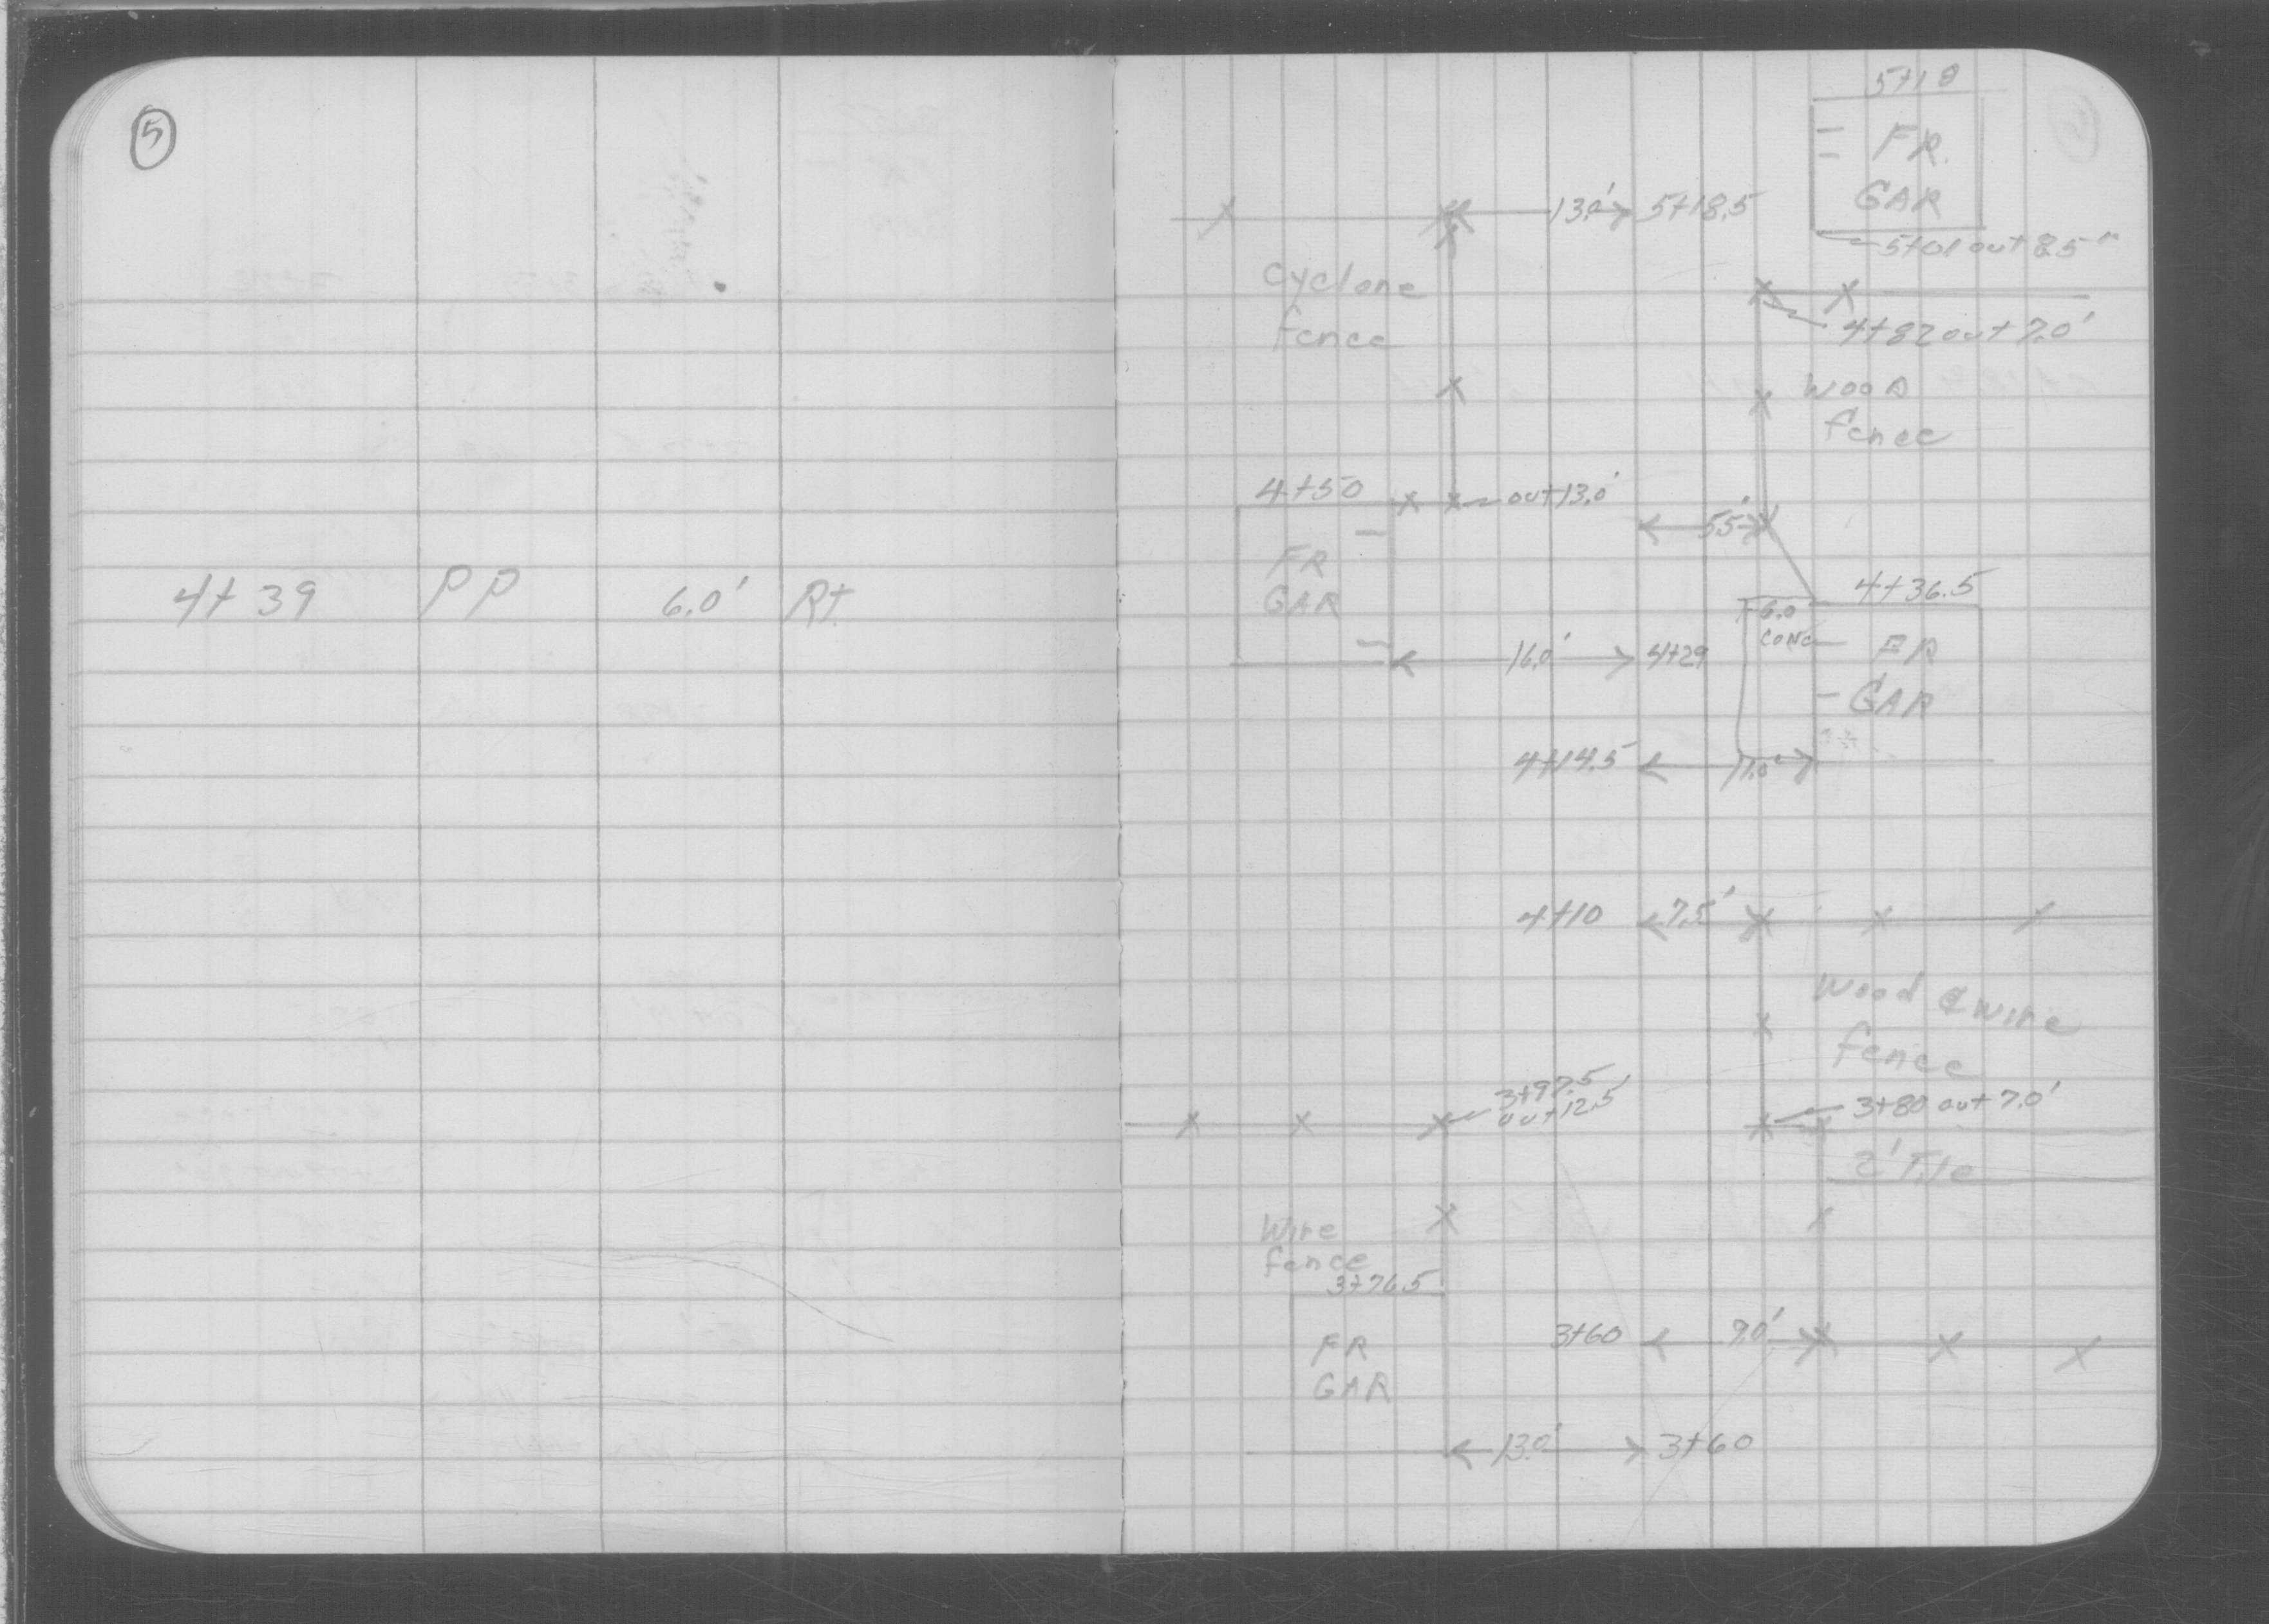 5
4+39 PP 6.0' Rt.
5+18
FR.
GAR
13.0' 5+18.5
5+01 out 8.5'
Cyclone
fence
4+82 out 7.0'
Wood
fence
4+50
out 13.0'
5.5'
FR
GAR
4+36.5
6.0
CONC
FR
GAR
16.0' 4+29
4+14.5 11.0'
4+10 7.5'
Wood & wire
fence
3+97.5
out 12.5'
3+80 out 7.0'
2' Tile
Wire
fence
3+76.5
3+60 9.0'
FR
GAR
13.0' 3+60